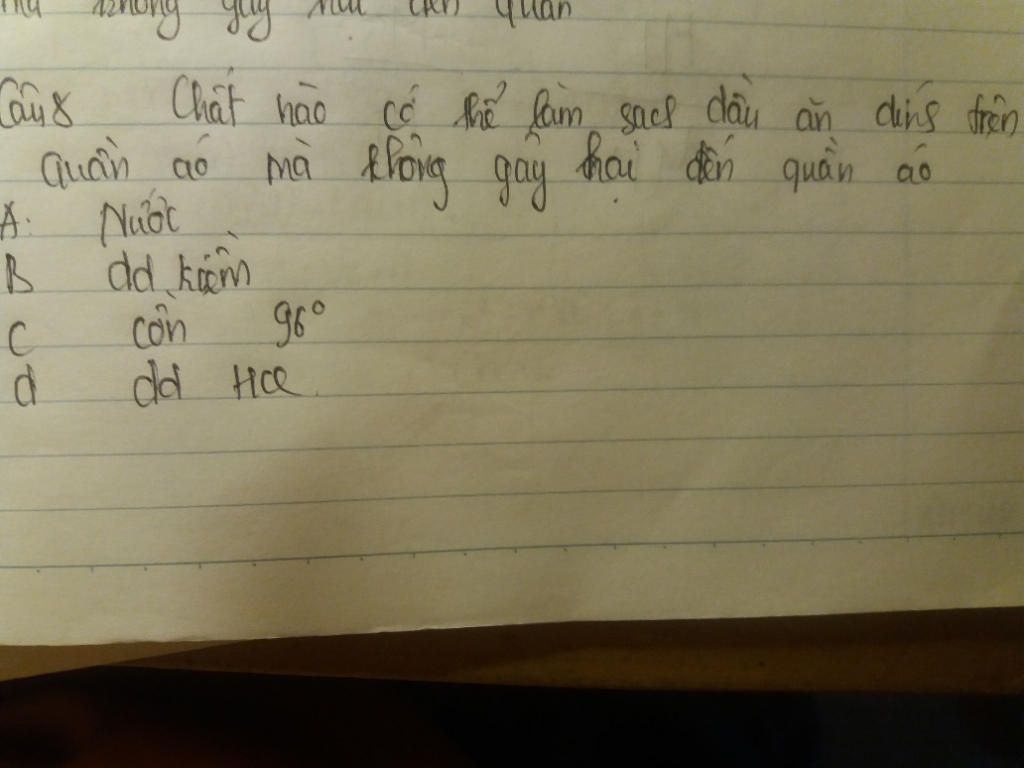 không gây hại đến quần
Câu 8 Chất nào có thể làm sach dầu ăn dính trên
quần áo mà không gây hại đến quần áo
A. Nước
B dd kiềm
C cồn 96°
d dd HCl.